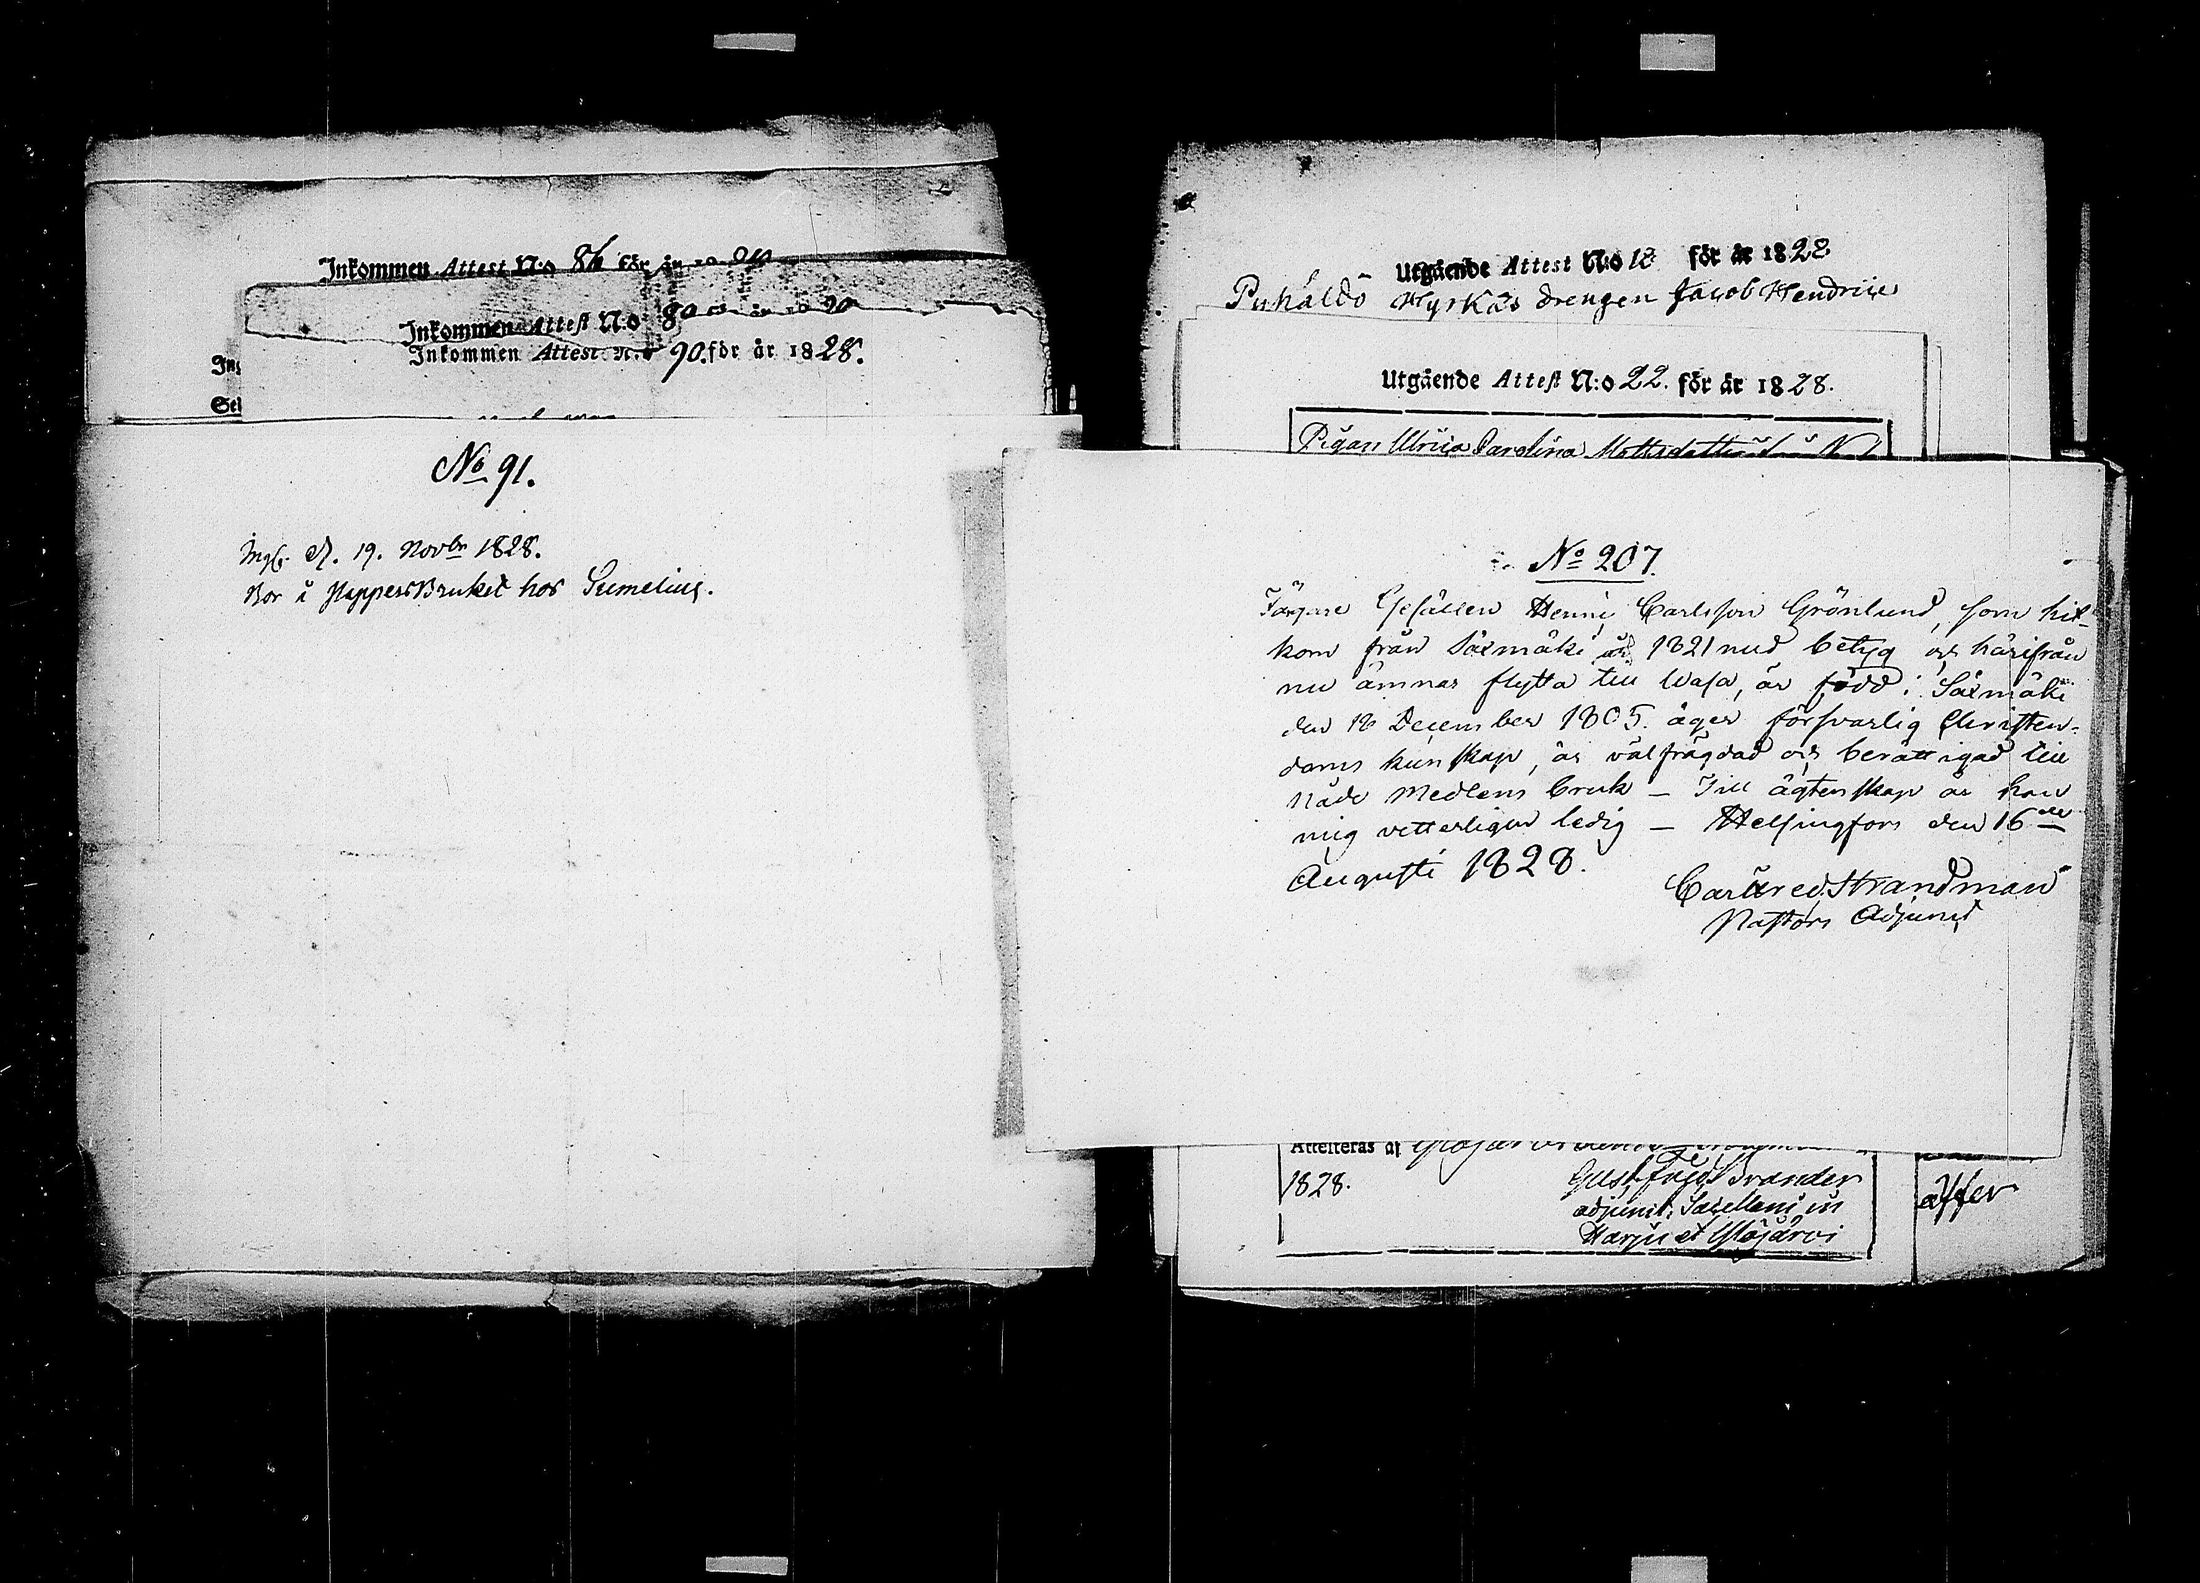 Inkommen Attest N:o 86 för år
Inkommen Attest N:o 80
Inkommen Attest N:o 90. för år 1828.
No 91.
Ingf. d. 19. Novbr 1828.
Bor i PappersBruket hos Sumelius.
Utgående Attest N:o 18 för år 1828
Pyhäldö Myrkäs drengen Jacob Hendric
Utgående Attest N:o 22. för år 1828.
Pigan Ulrica Carolina Mattsdotter
No 207.
Färgare Gesällen Henric Carlsson Grönlund, som hit-
kom från Säxmäki år 1821 med betyg och härifrån
nu ämnar flytta till Wasa, är född i Säxmäki
den 18 December 1805. äger försvarlig Christen-
doms kunskap, är välfrägdad och berättigad till
Nåde Medlens bruk – Till ägtenskap är han
mig vetterligen ledig – Helsingfors den 16de
Augusti 1828.
Carl Fred. Strandman
Pastors Adjunct
Attesteras af
1828.
Gust. Brander
adjunct. Sacellani in
Harju et Ylöjärvi